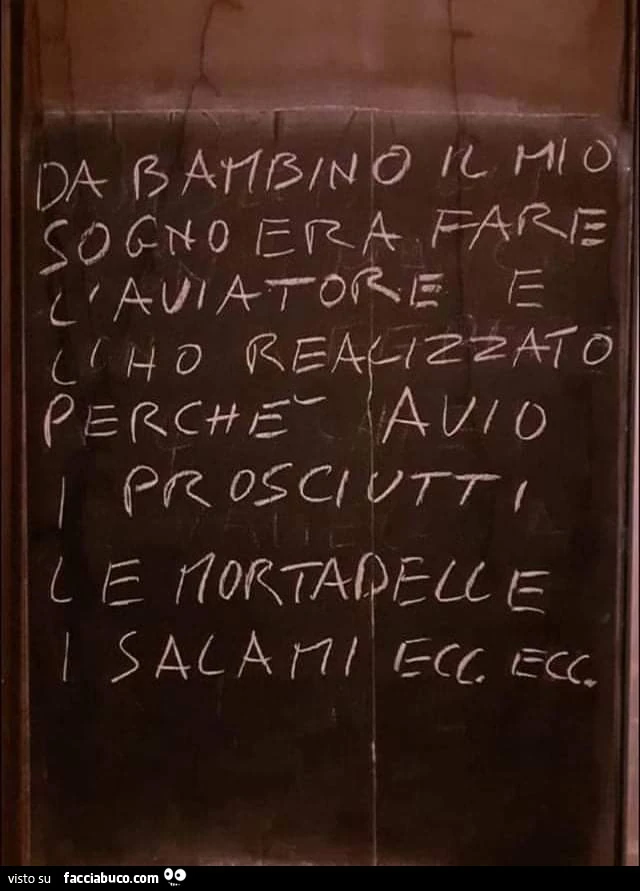 DA BAMBINO IL MIO
SOGNO ERA FARE
L'AVIATORE E
L'HO REALIZZATO
PERCHE` AVIO
I PROSCIUTTI
LE MORTADELLE
I SALAMI ECC. ECC.
visto su facciabuco.com